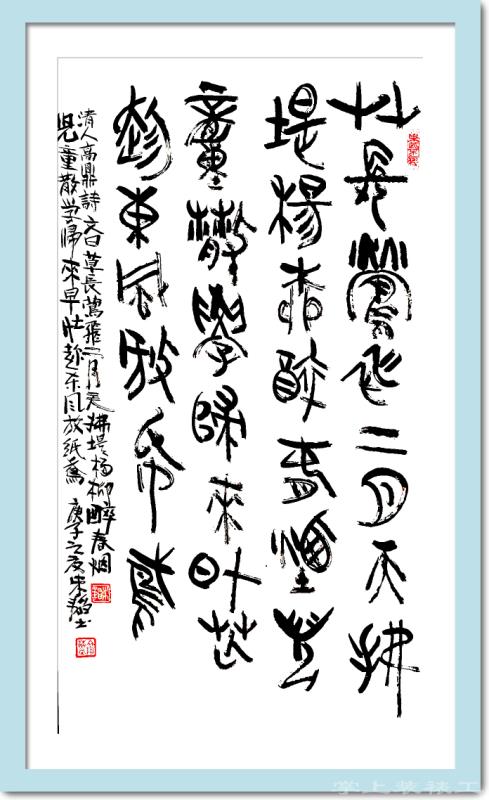 艸長鶯飛二月天拂
堤楊柳醉春煙兒
童散學歸來早忙
趁東風放紙鳶
清人高鼎詩文曰草長鶯飛二月天拂堤楊柳醉春烟
兒童散学歸來早忙趁东风放紙鳶 庚子之夏朱
掌上装裱工